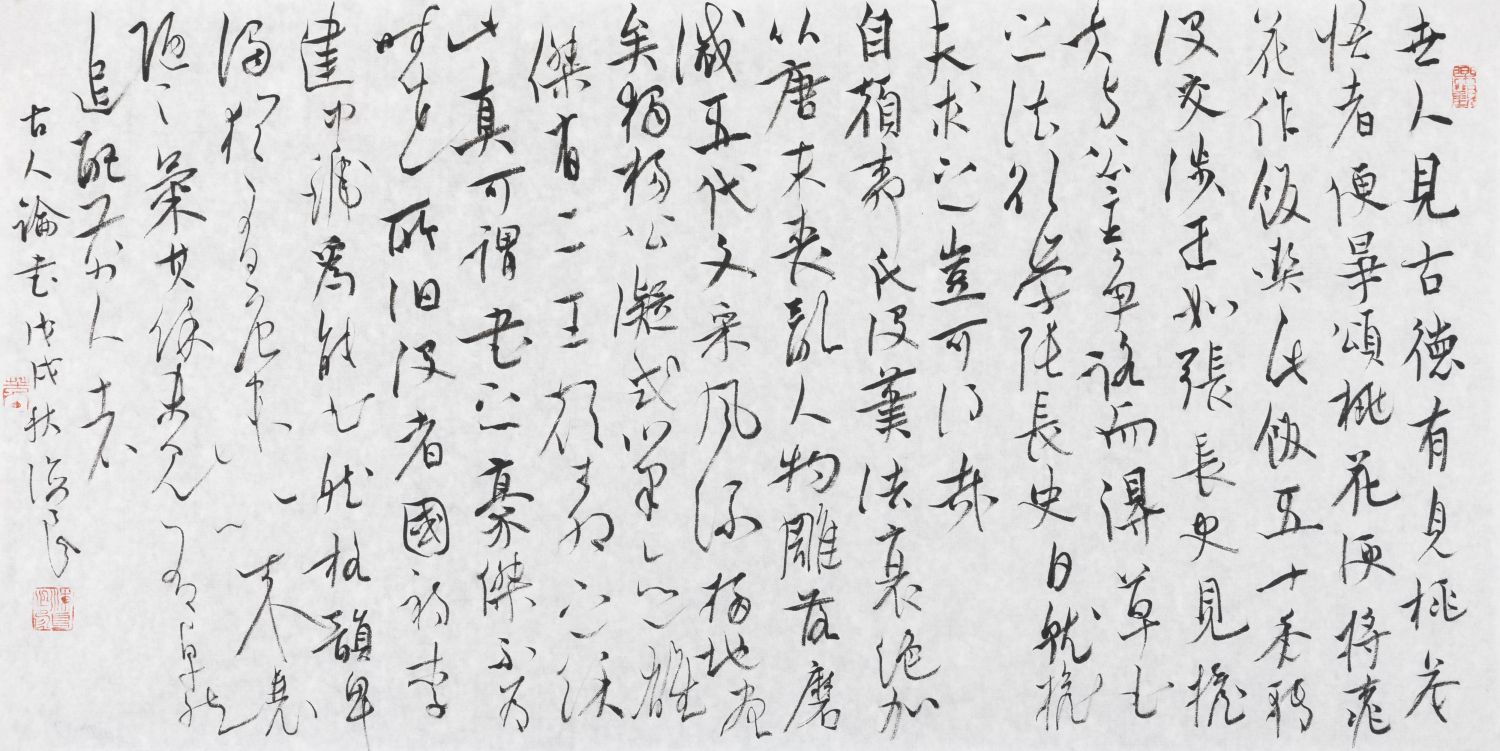 世人見古德有見桃花
悟者便畢頌桃花便將桃
花作飯喫此飯五十年轉
没交涉正如張長史見擔
夫与公主争路而得草書
之法欲學張長史日就擔
夫求之豈可得哉
自顔柳氏没筆法衰絕加
以唐末喪亂人物雕落磨
滅五代文采風流掃地盡
矣獨楊公凝式筆迹雄
傑有二王顔柳之餘
此真可謂書之豪傑不爲
時世所汩没者國初李
建中號爲能書然格韻卑
濁猶有唐末以來衰
陋之氣其餘未見有卓然
追配前人者
古人論書戊戌秋良